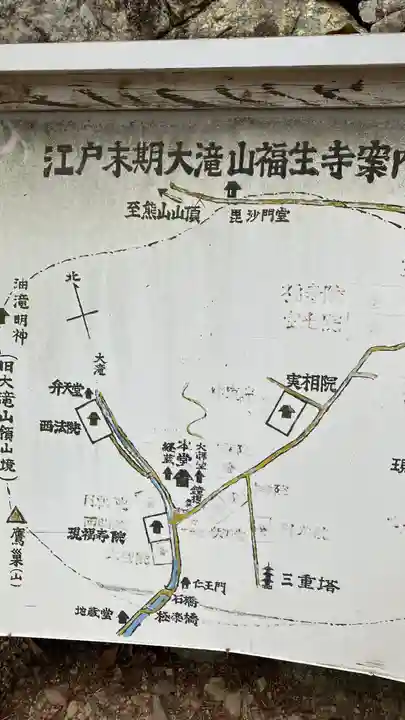 江戸末期大滝山福生寺案内
至熊山山頂
毘沙門堂
油滝明神
(旧大滝山領山境)
北
大滝
弁天堂
西法院
実相院
本堂
経蔵
大師堂
鐘楼
現福寺院
鷹巣(山)
仁王門
石橋
極楽橋
地蔵堂
三重塔
現